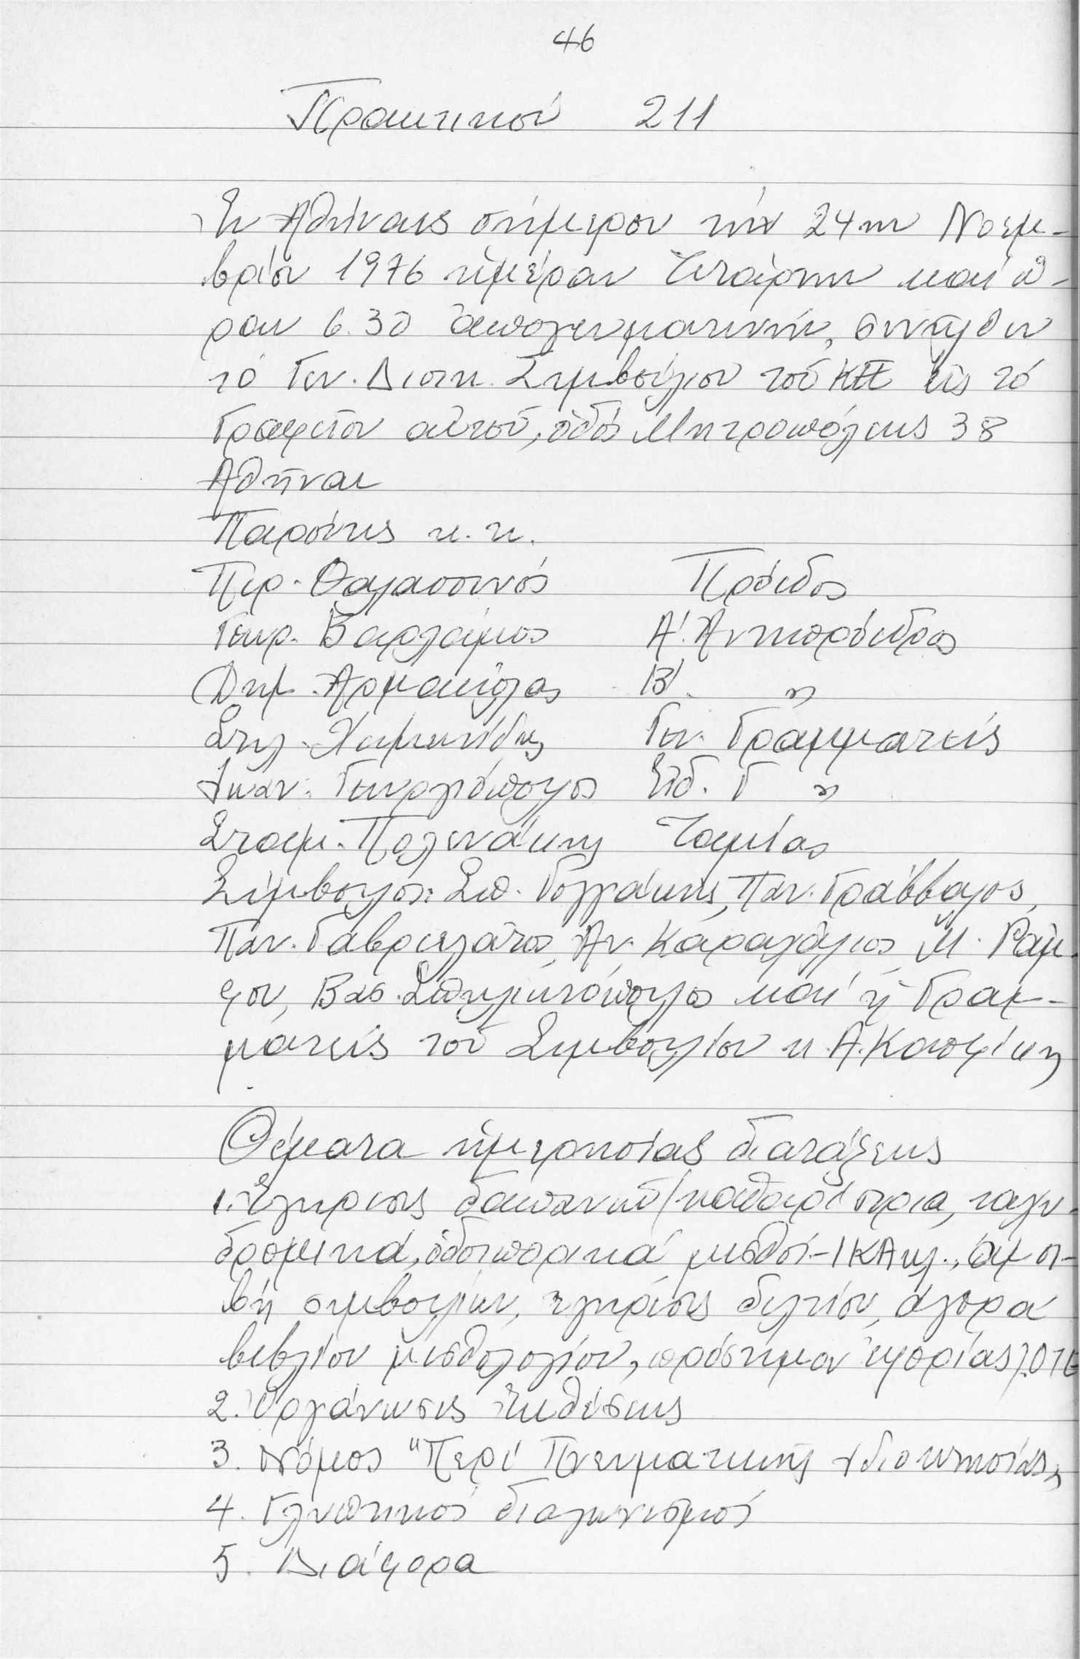 46
Πρακτικόν 211
Ἐν Ἀθήναις σήμερον τήν 24ην Νοεμ-
βρίου 1976 ἡμέραν Τετάρτην καί ὥ-
ραν 6.30 ἀπογευματινήν, συνῆλθεν
τό Γεν. Διοικ. Συμβούλιον τοῦ ΚΠΕ εἰς τό
Γραφεῖον αὐτοῦ, ὁδός Μητροπόλεως 38
Ἀθῆναι
Παρόντες κ.κ.
Περ. Θαλασσινός Πρόεδος
Γεωρ. Βαρλάμος Α'. Ἀντιπρόεδρος
Δημ. Ἀρμακόλας Β'. "
Στυλ. Γεν. Γραμματεύς
Ἰωάν. Γεωργιόπουλος Εἰδ. Γ "
Σταμ. Πολενάκης Ταμίας
Σύμβουλοι: Σπ. Γογγάκης, Παν. Γράββαλος,
Παν. Γαβριελάτος, Ἀν. Καραχάλιος Μ. Ράμ-
φου, Βασ. Σπηλιωτόπουλος καί ἡ Γραμ-
ματεύς τοῦ Συμβουλίου κ. Α.
Θέματα ἡμερησίας διατάξεως
1. Ἔγκρισις δαπανῶν (καθαρίστρια, ταχυ-
δρομικά, ὁδοιπορικά, μισθοί - ΙΚΑ κλ., ἀμοι-
βή συμβούλων, ἐγκρίσεις δελτίου, ἀγορά
βιβλίου μισθολογίου, πρόστιμον ἐφορίας), ΟΤΕ
2. Ὀργάνωσις Ἐκθέσεως
3. Νόμος "Περί Πνευματικῆς Ἰδιοκτησίας"
4. Γλυπτικός διαγωνισμός
5. Διάφορα